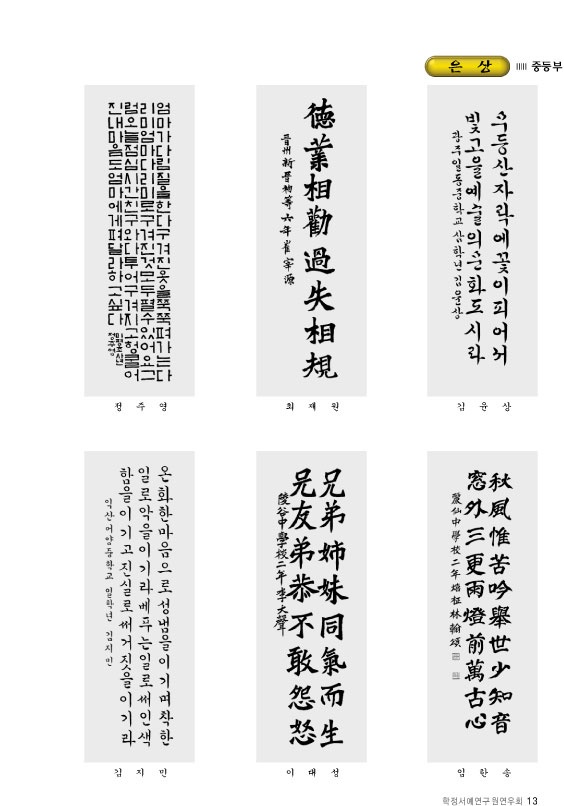 은 상 중등부
엄마가다림질을한다구겨진옷을쭉쭉펴가는다
리미엄마다리미로구겨진것모두펼수있어요그
럼오늘점심시간친구와다투어구겨지고헝클어
진내마음도엄마에게펴달라하고싶다
정주영
德業相勸過失相規
晋州新晋初等六年崔宰源
무등산자락에꽃이피어
빛고을예술의문화도시라
광주일동중학교삼학년김윤상
정 주 영
최 재 원
김 윤 상
온화한마음으로성냄을이기며착한
일로악을이기라베푸는일로써인색
함을이기고진실로써거짓을이기라
익산어양중학교 일학년 김지민
兄弟姉妹同氣而生
兄友弟恭不敢怨怒
陵谷中學校二年李大聲
秋風惟苦吟擧世少知音
窓外三更雨燈前萬古心
仙中學校二年 林翰頌
김 지 민
이 대 성
임 한 송
학정서예연구원연우회 13